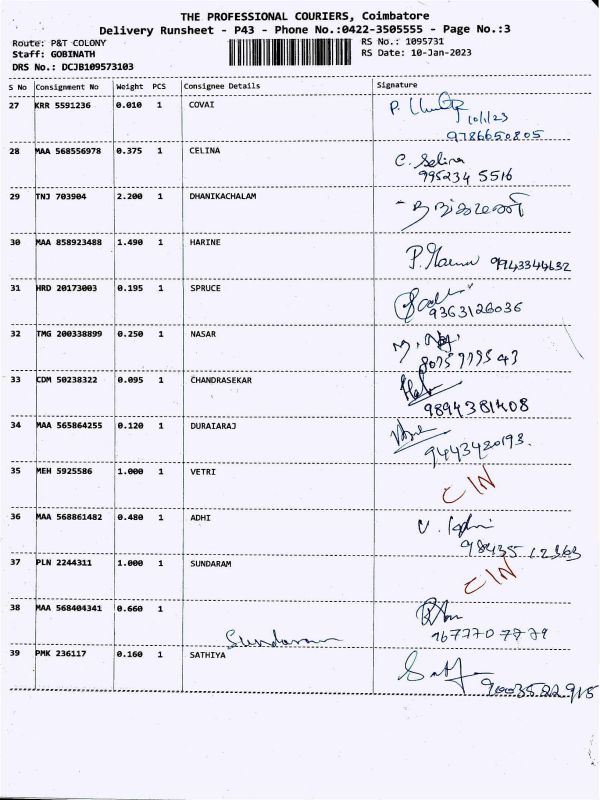 THE PROFESSIONAL COURIERS, Coimbatore
Delivery Runsheet - P43 - Phone No.:0422-3505555 - Page No.:3
Route: P&T COLONY RS No.: 1095731
Staff: GOBINATH RS Date: 10-Jan-2023
DRS No.: DCJB109573103
S No Consignment No Weight PCS Consignee Details Signature
27 KRR 5591236 0.010 1 COVAI
10/1/23
9786650805
28 MAA 568556978 0.375 1 CELINA C. Selina
995234 5516
29 TNJ 703904 2.200 1 DHANIKACHALAM
30 MAA 858923488 1.490 1 HARINE 9943344632
31 HRD 20173003 0.195 1 SPRUCE
9363126036
32 TMG 200338899 0.250 1 NASAR
33 CDM 50238322 0.095 1 CHANDRASEKAR
9894381408
34 MAA 565864255 0.120 1 DURAIARAJ
9443420193.
35 MEH 5925586 1.000 1 VETRI CIN
36 MAA 568861482 0.480 1 ADHI
98435 12363
37 PLN 2244311 1.000 1 SUNDARAM CIN
38 MAA 568404341 0.660 1
Sundaram
39 PMK 236117 0.160 1 SATHIYA
9003522915